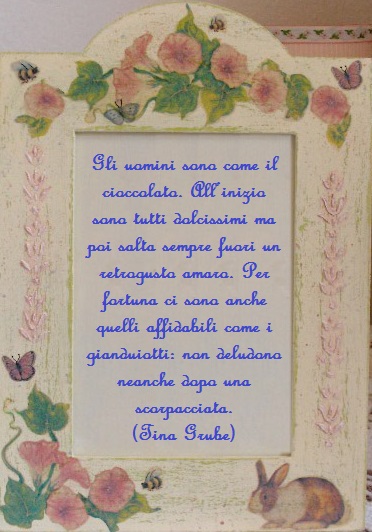 Gli uomini sono come il
cioccolato. All'inizio
sono tutti dolcissimi ma
poi salta sempre fuori un
retrogusto amaro. Per
fortuna ci sono anche
quelli affidabili come i
gianduiotti: non deludono
neanche dopo una
scorpacciata.
(Tina Grube)